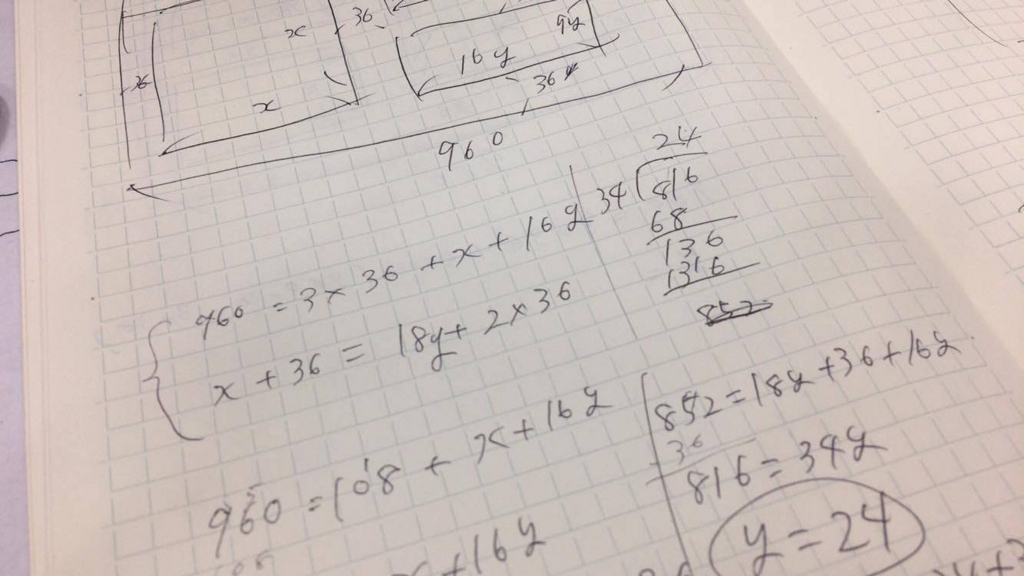 x
36
9y
x
16y
x
36
960
24
34 816
68
136
136
852
960 = 3 × 36 + x + 16y
x + 36 = 18y + 2 × 36
960 = 108 + x + 16y
852 = 18y + 36 + 16y
36
816 = 34y
y = 24
+ 16y